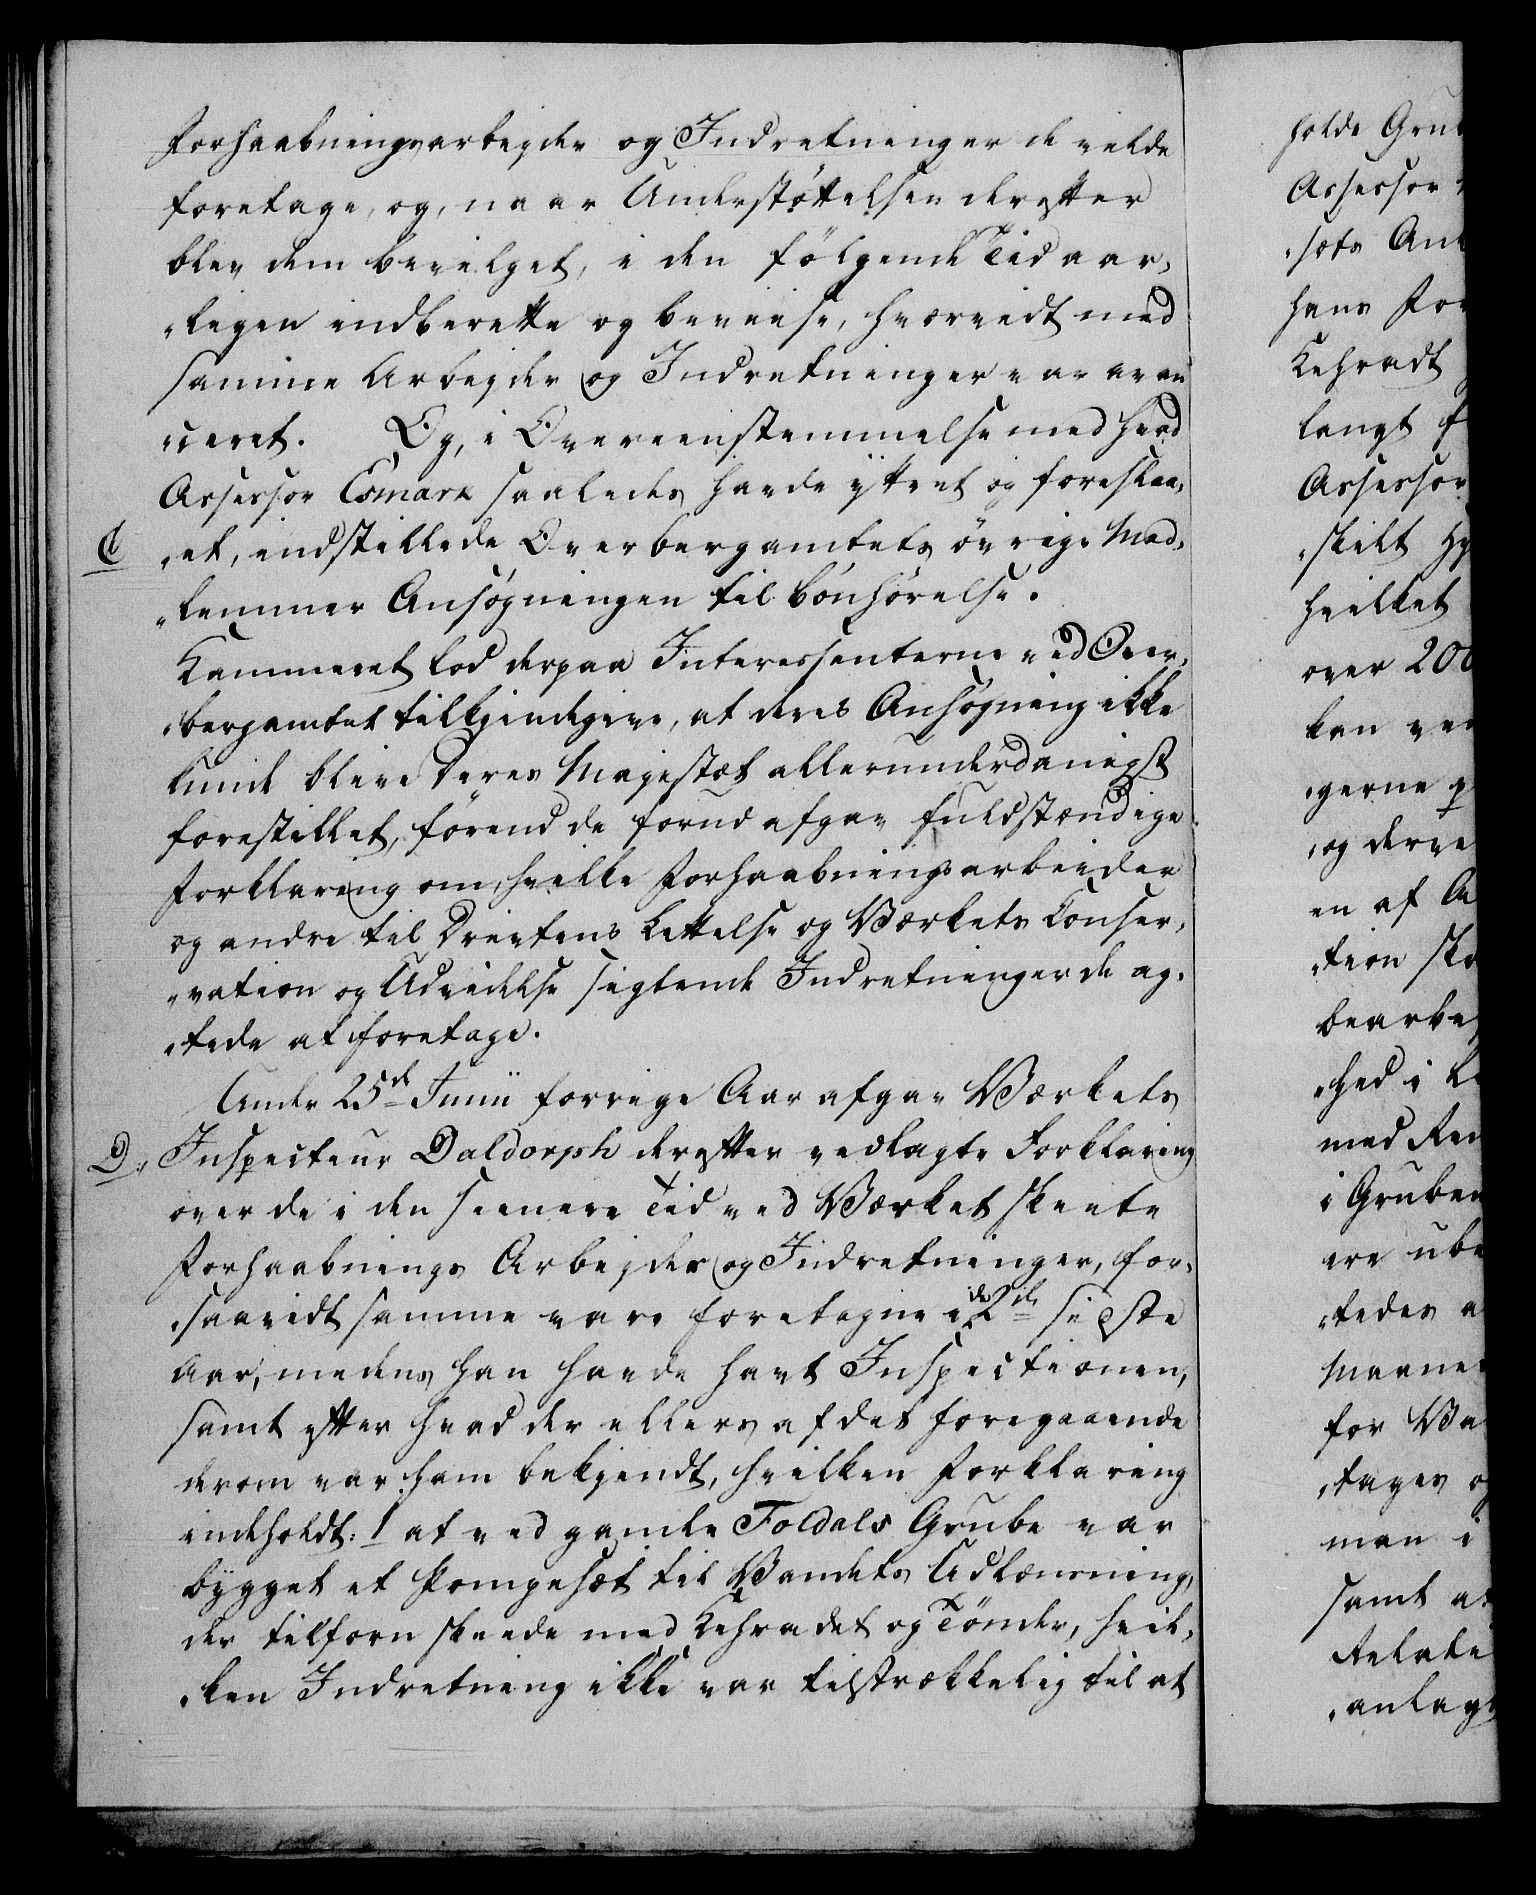 Forhaabningsarbejder og Indretninger de vilde
foretage, og, naar Understøttelsen derefter
blev dem bevilget, i den følgende Tid aar-
„ligen indberette og beviise, hvorvidt med
samme Arbejder og Indretninger var avan
ceret. Og, i Overeenstemmelse med hvad
Assessor Esmark saaledes havde yttret og foreslaa-
C „et, indstillede Overbergamtets øvrige Med-
„lemmer Ansøgningen til bønhørelse.
Kammeret lod derpaa Interessenterne ved Over-
„bergamtet tilkjendegive, at deres Ansøgning ikke
kunde blive Deres Majestæt allerunderdanigst
forestillet, førend de forud afgav fuldstændige
Forklaring om, hvilke Forhaabningsarbeider
og andre til Driftens Lettelse og Værkets Conser-
„vation og Udvidelse sigtende Indretninger de ag-
„tede at foretage.
Under 25de Junii forrige Aar afgav Værkets
D. Inspecteur Daldorph derefter vedlagte Forklaring
over de i den seenere Tid ved Værket skeete
Forhaabnings Arbejder og Indretninger, for-
„saavidt samme vare foretagne i de 2de sidste
Aar, medens han havde havt Inspectionen,
samt efter hvad der ellers af det foregaaende
derom var ham bekjendt, hvilken Forklaring
indeholdt: 1 at ved gamle Foldals Grube var
bygget et Pompesæt til Vandets Udlændsning,
der tilforn skeede med Kehradet og Tønder, hvil-
„ken Indretning ikke var tilstrækkelig til at
holde Gru
Assessor
„sets An
hans For
Kehradt
langt f
Assessor
„skilt Hy
hvilket
over 200
kan ve
„gerne p
„og derve
en af A
„tion sk
bearbe
„hed i L
med Re
i Gruben
ere ube
„tedes a
Maane
for Va
„tages o
man i
samt at
Relati
„anlag